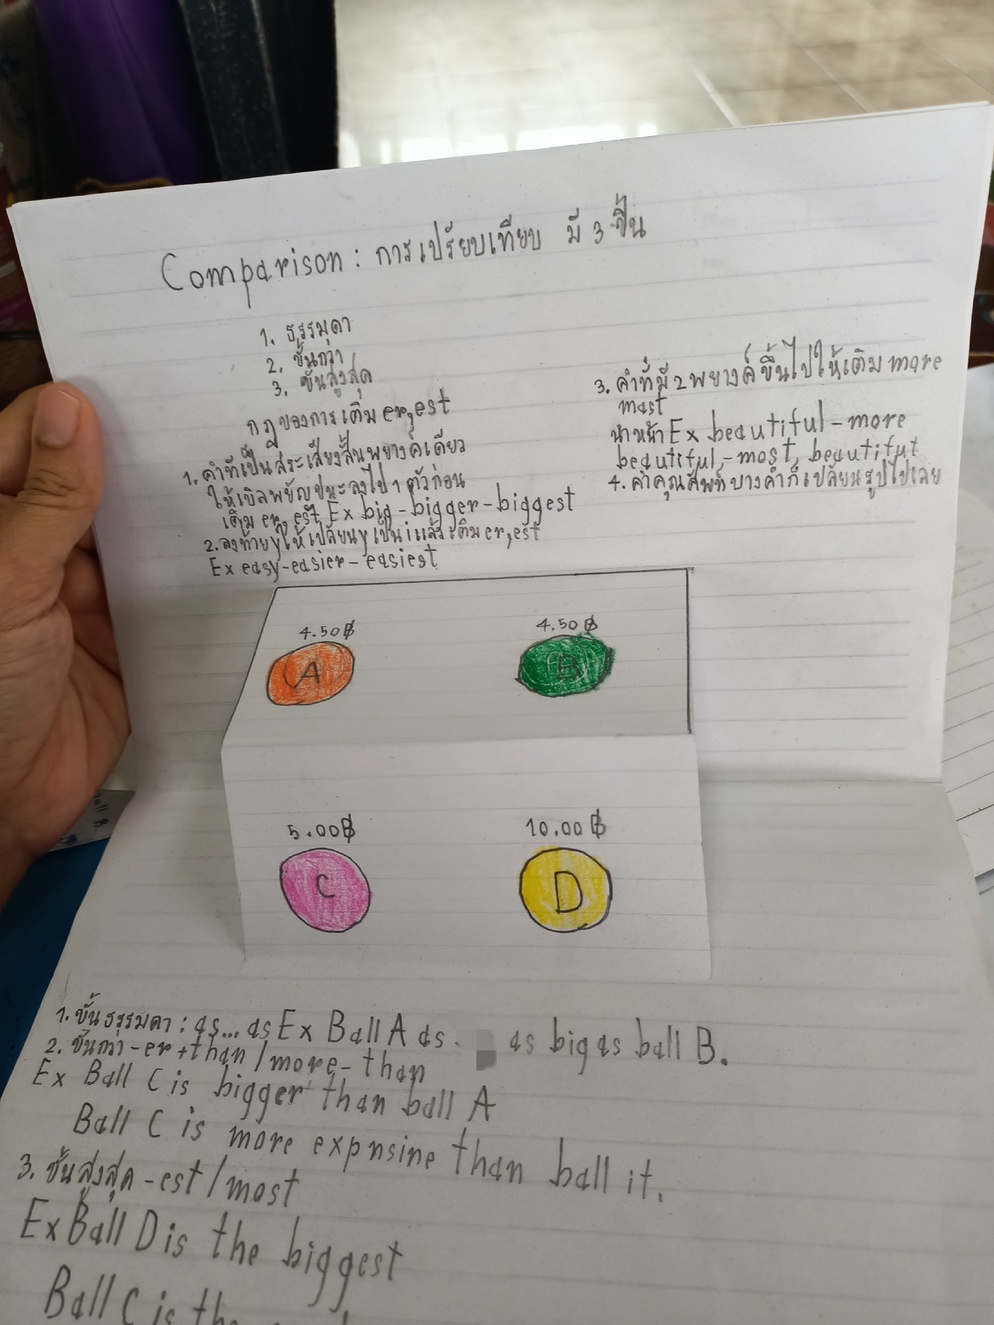 Comparison : การเปรียบเทียบ มี 3 ขั้น
1. ธรรมดา
2. ขั้นกว่า
3. ขั้นสูงสุด
กฎของการเติม er,est
1. คำที่เป็นสระเสียงสั้นพยางค์เดียว
ให้เบิลพยัญชนะลงไป 1 ตัวก่อน
เติม er, est Ex big-bigger-biggest
2. ลงท้าย y ให้เปลี่ยน y เป็น i แล้วเติม er,est
Ex easy-easier-easiest
3. คำที่มี 2 พยางค์ขึ้นไปให้เติม more
mast
นำหน้า Ex beautiful-more
beautiful,-most, beautiful
4. คำคุณศัพท์บางคำก็เปลี่ยนรูปไปเลย
4.50฿
4.50฿
A
B
5.00฿
10.00฿
C
D
1. ขั้นธรรมดา : as... as Ex Ball A as as big as ball B.
2. ขั้นกว่า -er+than/more-than
Ex Ball C is bigger than ball A
Ball C is more expnsine than ball it.
3. ขั้นสูงสุด -est/most
Ex Ball D is the biggest
Ball C is the